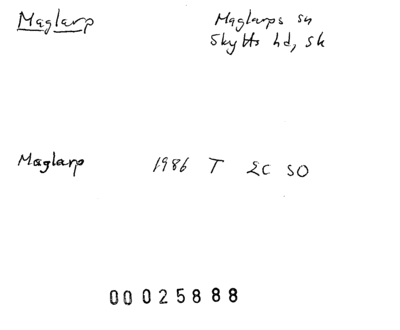 Maglarp
Maglarps sn
Skytts hd, Sk
Maglarp 1986 T 2C SO
00025888